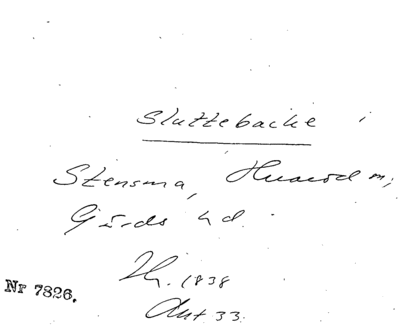 Sluttebacke
Stensma, Huarod m;
Gärds hd.
Jh. 1838
Ant 33.
Nr 7826.